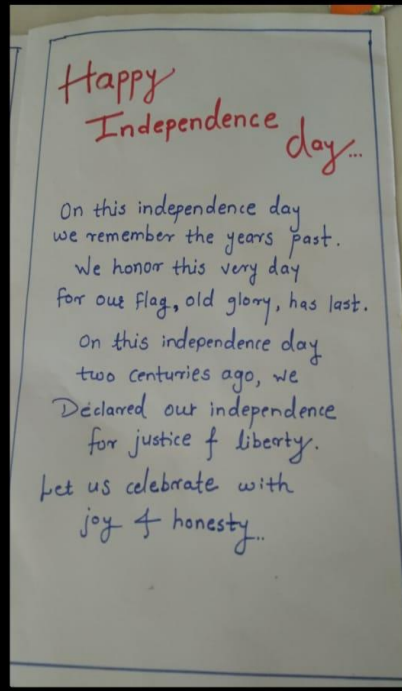 Happy
Independence
day...
On this independence day
we remember the years past.
We honor this very day
for our flag, old glory, has last.
On this independence day
two centuries ago, we
Declared our independence
for justice & liberty.
Let us celebrate with
joy & honesty..